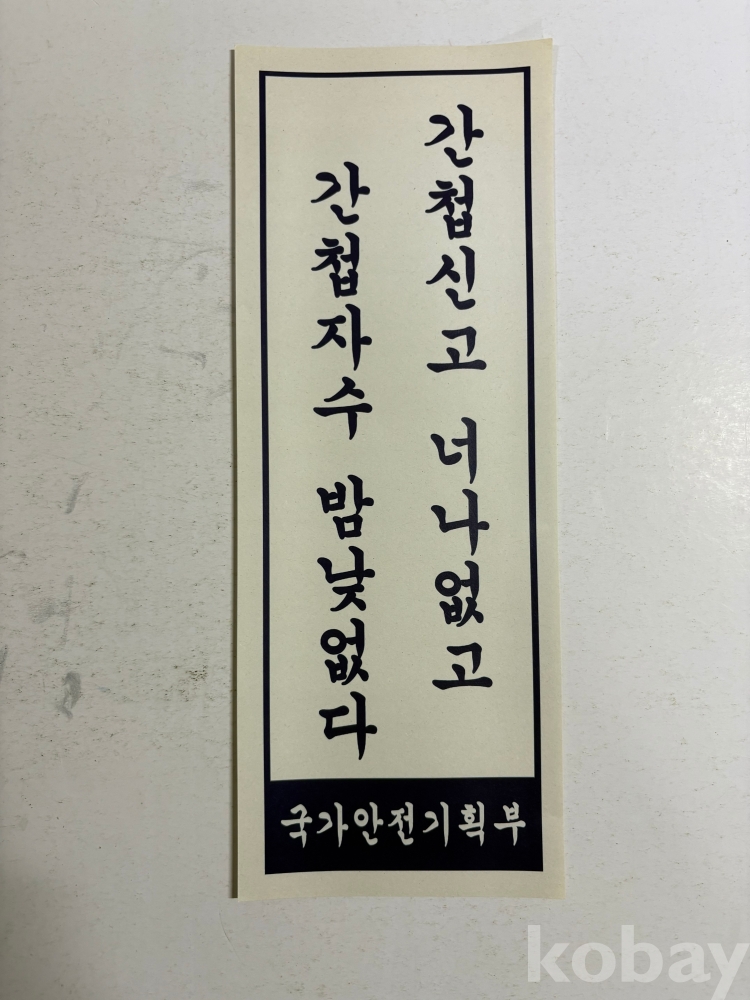 간첩신고 너나없고
간첩자수 밤낮없다
국가안전기획부
kobay